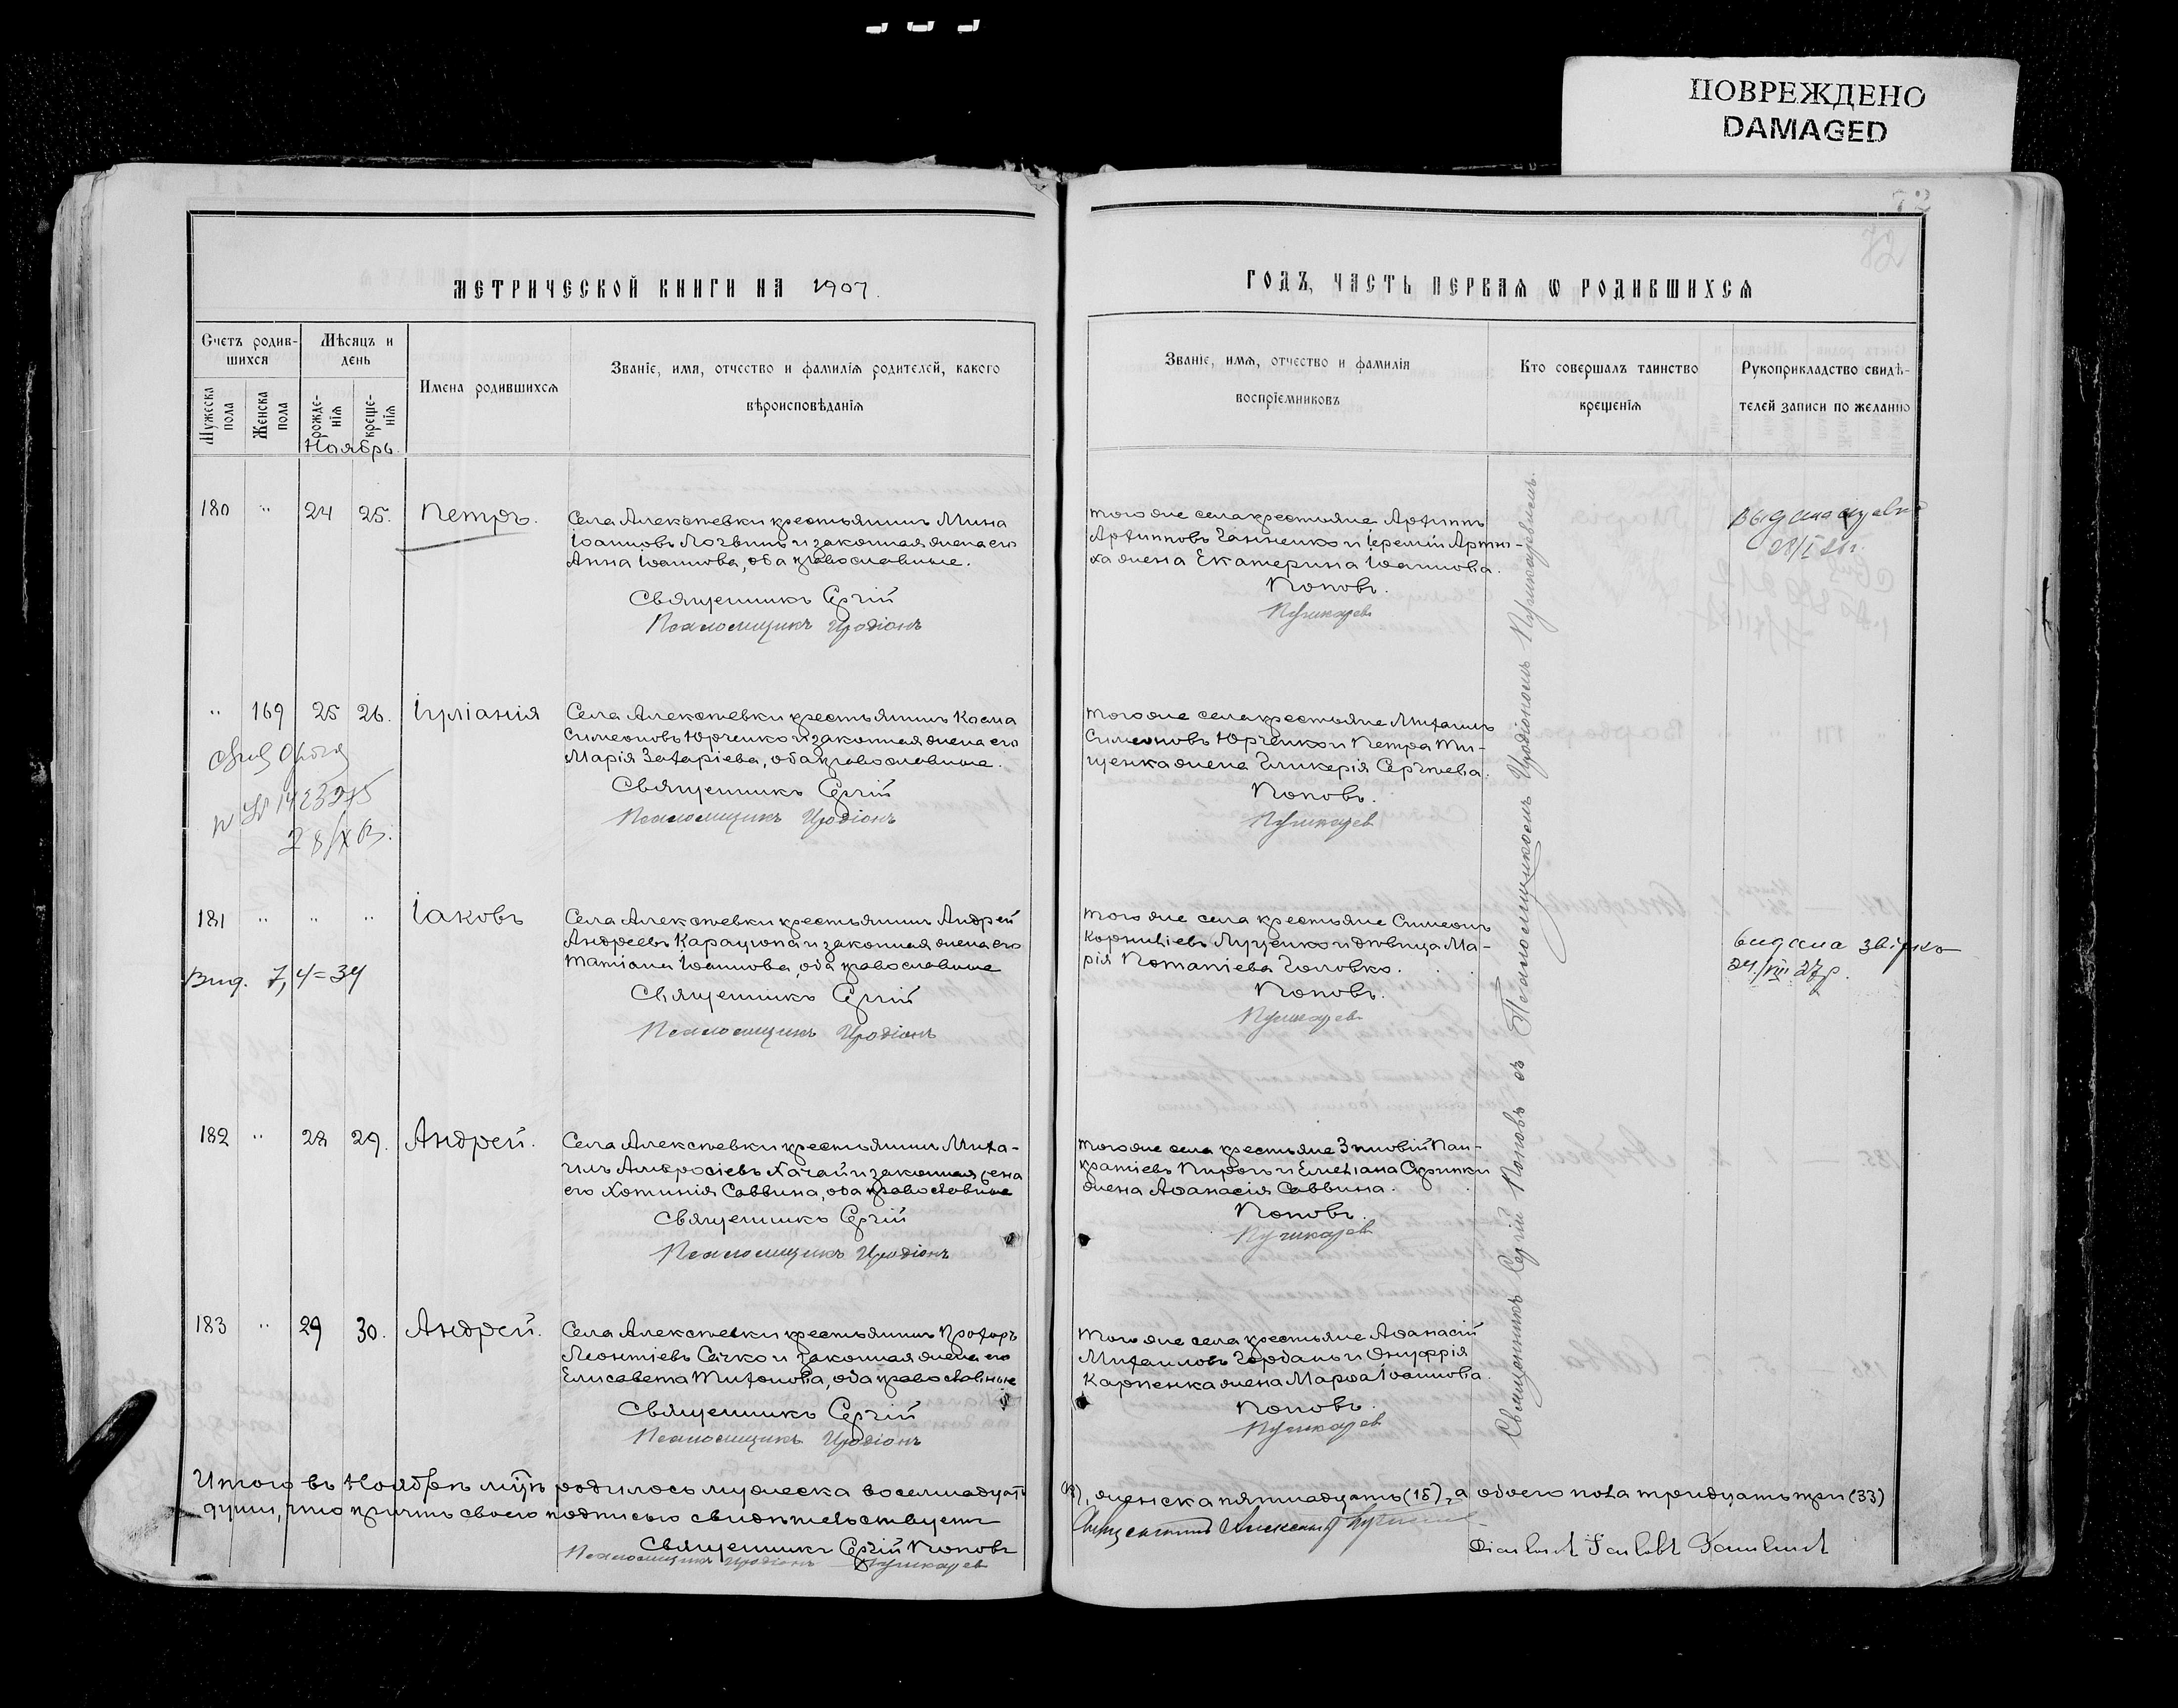 ПОВРЕЖДЕНО
DAMAGED
72
МЕТРИЧЕСКОЙ КНИГИ НА 1907.
ГОДЪ, ЧАСТЬ ПЕРВАЯ Ѡ РОДИВШИХСЯ
Счетъ родив-
шихся
Мужеска
пола
Женска
пола
Мѣсяцъ и
день
рожде-
нія
креще-
нія
Ноябрь.
Имена родившихся
Званіе, имя, отчество и фамилія родителей, какого
вѣроисповѣданія
Званіе, имя, отчество и фамилія
воспріемниковъ
Кто совершалъ таинство
крещенія
Рукоприкладство свидѣ-
телей записи по желанію
180 " 24 25. Петръ.
Села Алексѣевки крестьянинъ Мина
Іоанновъ Логвинъ и законная жена его
Анна Іоаннова, оба православные.
Священникъ Сергій
Псаломщикъ Иродіонъ
того же села крестьяне Архиппъ
Архипповъ Ганненко и Іереміи Артю-
ха жена Екатерина Іоаннова.
Поповъ.
Пушкаревъ
28/I
" 169 25 26. Іуліанія
Села Алексѣевки крестьянинъ Косма
Симеоновъ Юрченко и законная жена его
Марія Захаріева, оба православные.
Священникъ Сергій
Псаломщикъ Иродіонъ
того же села крестьяне Михаилъ
Симеоновъ Юрченко и Петра Ти-
щенка жена Гликерія Сергѣева.
Поповъ.
Пушкаревъ
№ 1423275
181 " " " Іаковъ
Села Алексѣевки крестьянинъ Андрей
Андреевъ Карацюпа и законная жена его
Татіана Іоаннова, оба православные
Священникъ Сергій
Псаломщикъ Иродіонъ
того же села крестьяне Симеонъ
Корниліевъ Луценко и дѣвица Ма-
рія Потапіева Головко.
Поповъ.
Пушкаревъ
Вид. 7, 4=34
видана звірка
24/VIII 27р.
182 " 28 29. Андрей.
Села Алексѣевки крестьянинъ Миха-
илъ Амвросіевъ Хачай и законная жена
его Хотинія Саввина, оба православные
Священникъ Сергій
Псаломщикъ Иродіонъ
того же села крестьяне Зиновій Пан-
кратіевъ Пирогъ и Емеліана
жена Афанасія Саввина.
Поповъ.
Пушкаревъ
183 " 29 30. Андрей.
Села Алексѣевки крестьянинъ Прохоръ
Леонтіевъ Сачко и законная жена его
Елисавета Тихонова, оба православные
Священникъ Сергій
Псаломщикъ Иродіонъ
того же села крестьяне Афанасій
Михаиловъ Горбань и Онуфрія
Карпенка жена Марфа Іоаннова.
Поповъ.
Пушкаревъ
Священникъ Сергій Поповъ съ Псаломщикомъ Иродіономъ Пушкаревымъ.
Итого въ Ноябрѣ м-цѣ родилось мужеска восемнадцать
(18), женска пятнадцать (15), а обоего пола тридцать три (33)
души, что причтъ своею подписью свидѣтельствуетъ
Священникъ Сергій Поповъ
Псаломщикъ Иродіонъ Пушкаревъ
Священникъ Александръ